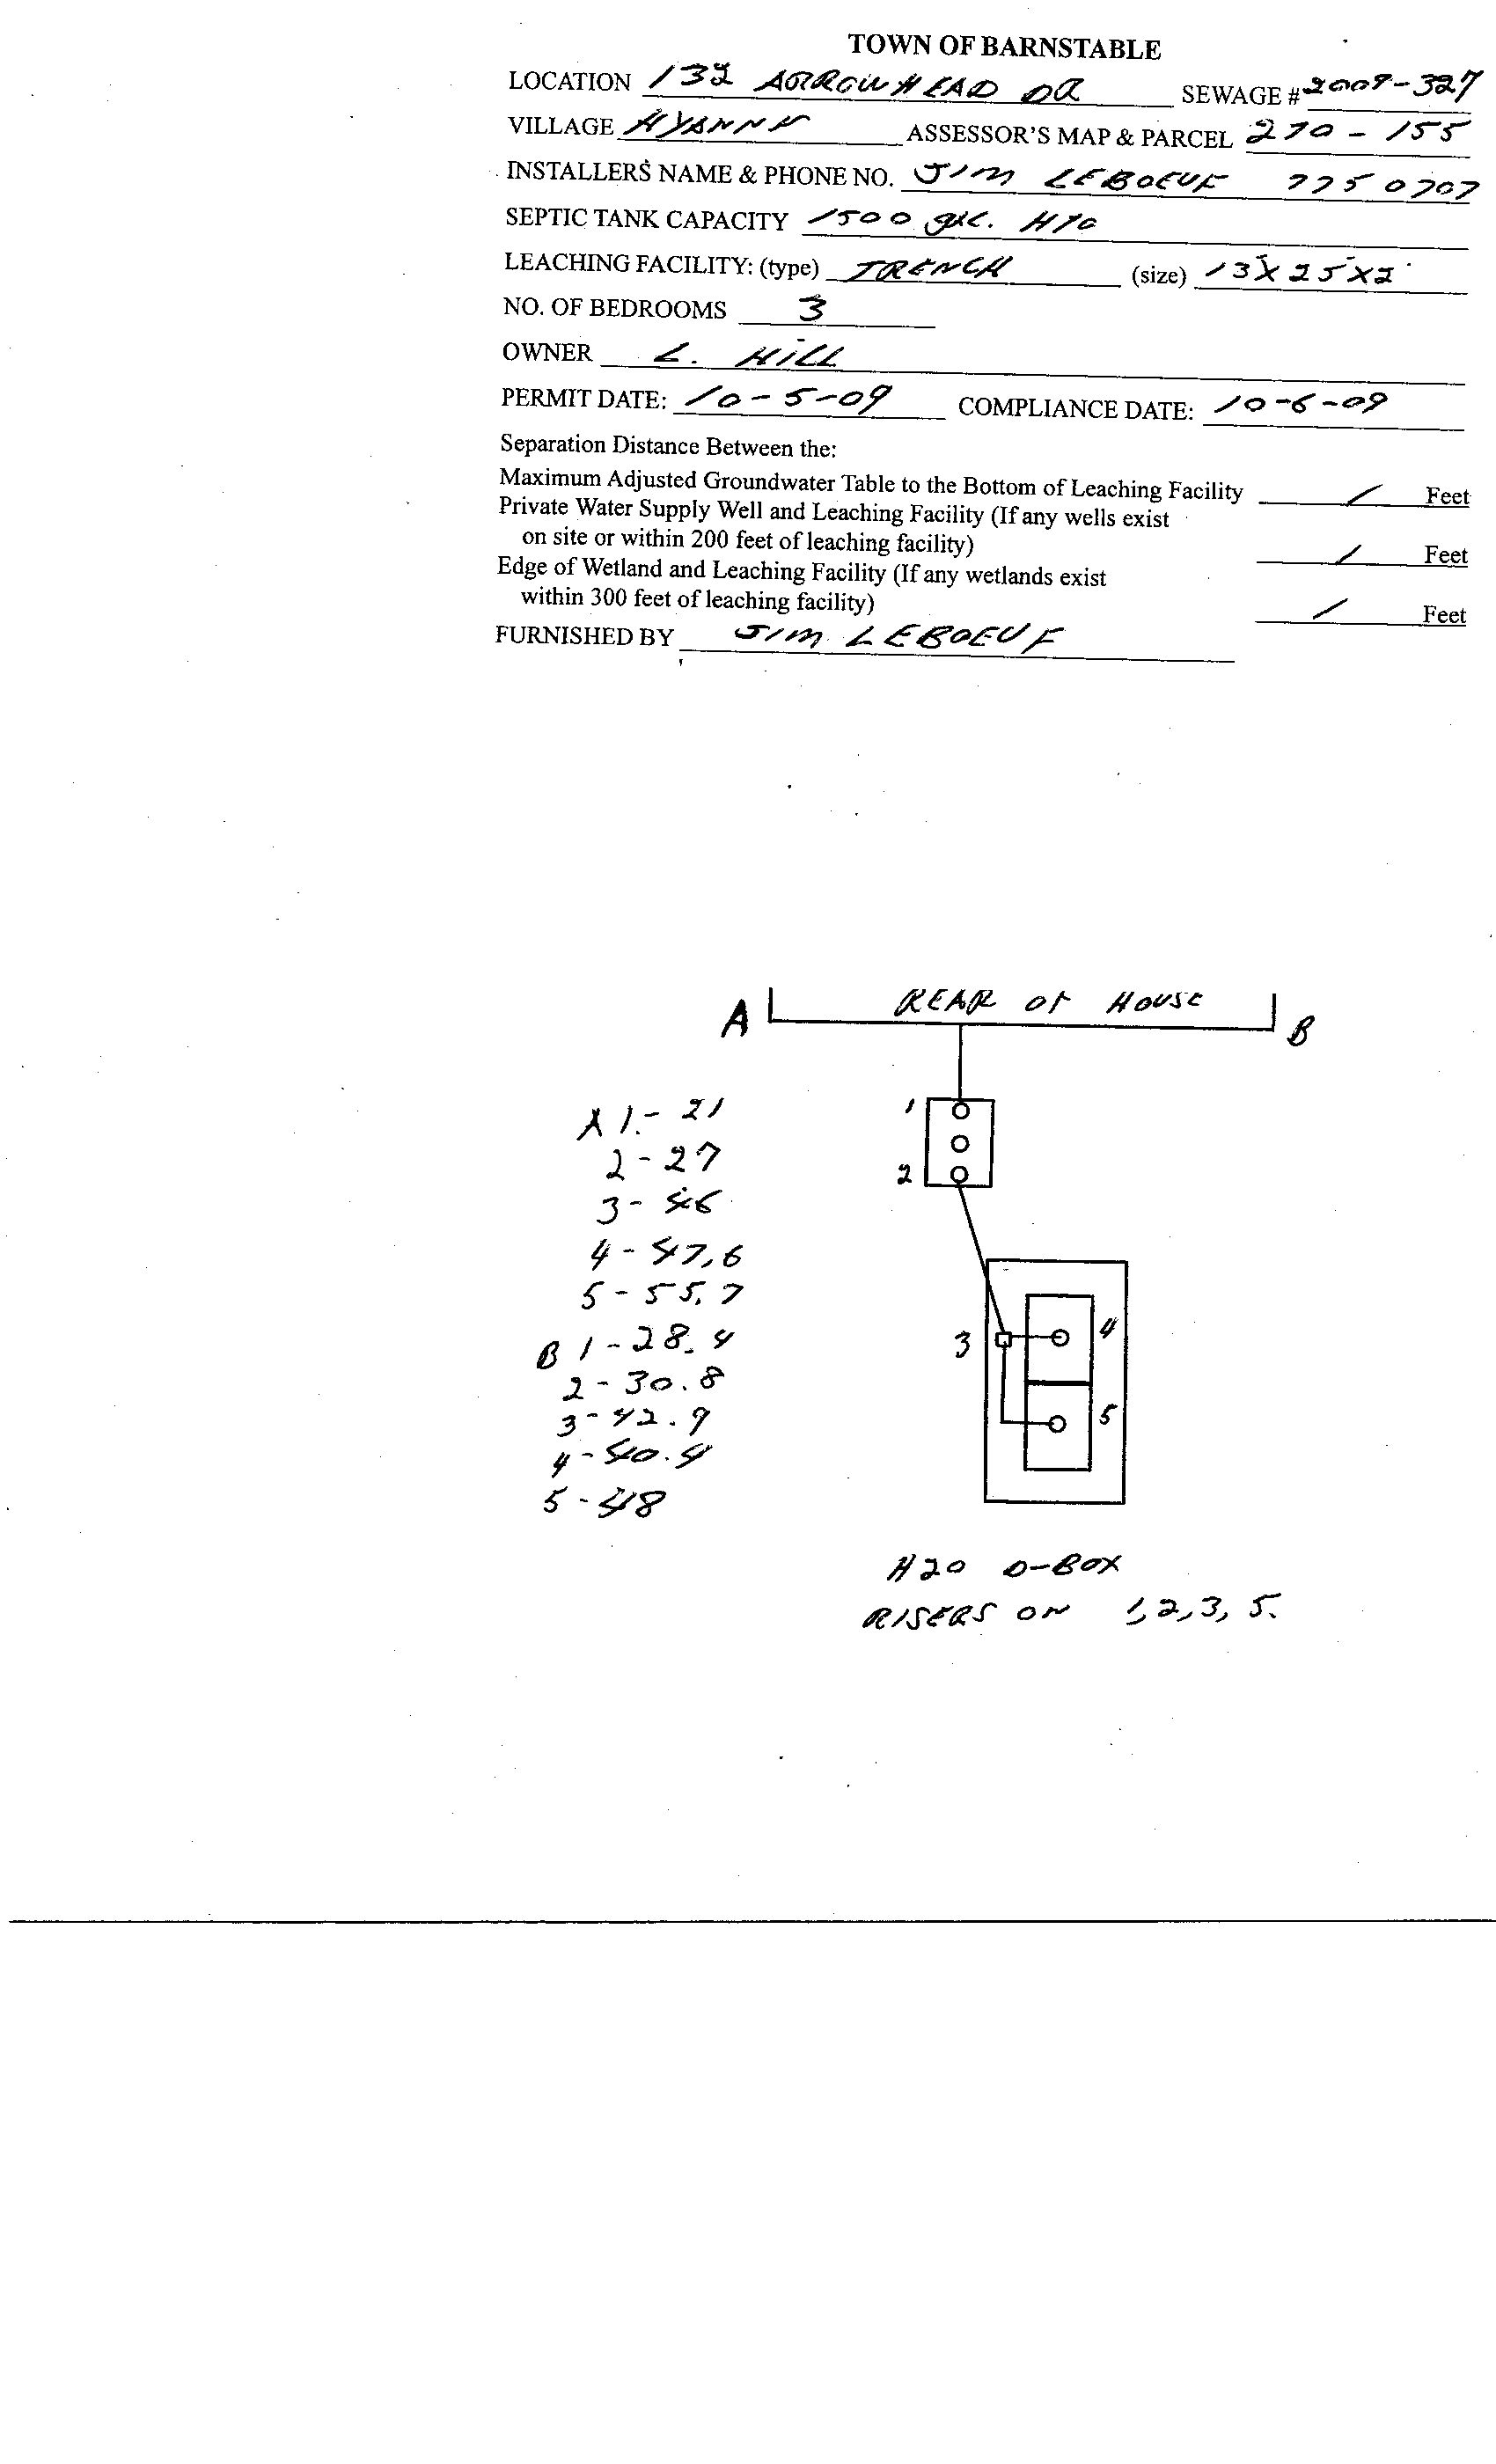 TOWN OF BARNSTABLE
LOCATION 132 ARROWHEAD DR SEWAGE # 2009-327
VILLAGE ASSESSOR'S MAP & PARCEL 270 - 155
INSTALLERS NAME & PHONE NO. JIM LEBOEUF 775 0707
SEPTIC TANK CAPACITY 1500 gal. H10
LEACHING FACILITY: (type) TRENCH (size) 13 X 25 X 2
NO. OF BEDROOMS 3
OWNER L. HILL
PERMIT DATE: 10-5-09 COMPLIANCE DATE: 10-6-09
Separation Distance Between the:
Maximum Adjusted Groundwater Table to the Bottom of Leaching Facility / Feet
Private Water Supply Well and Leaching Facility (If any wells exist
on site or within 200 feet of leaching facility) / Feet
Edge of Wetland and Leaching Facility (If any wetlands exist
within 300 feet of leaching facility) / Feet
FURNISHED BY JIM LEBOEUF
A REAR OF HOUSE B
A 1.- 21
2 - 27
3 - 46
4 - 47.6
5 - 55.7
B 1 - 28.4
2 - 30.8
3 - 42.9
4 - 40.4
5 - 48
1
2
3
4
5
H20 D-BOX
RISERS ON 1, 2, 3, 5.